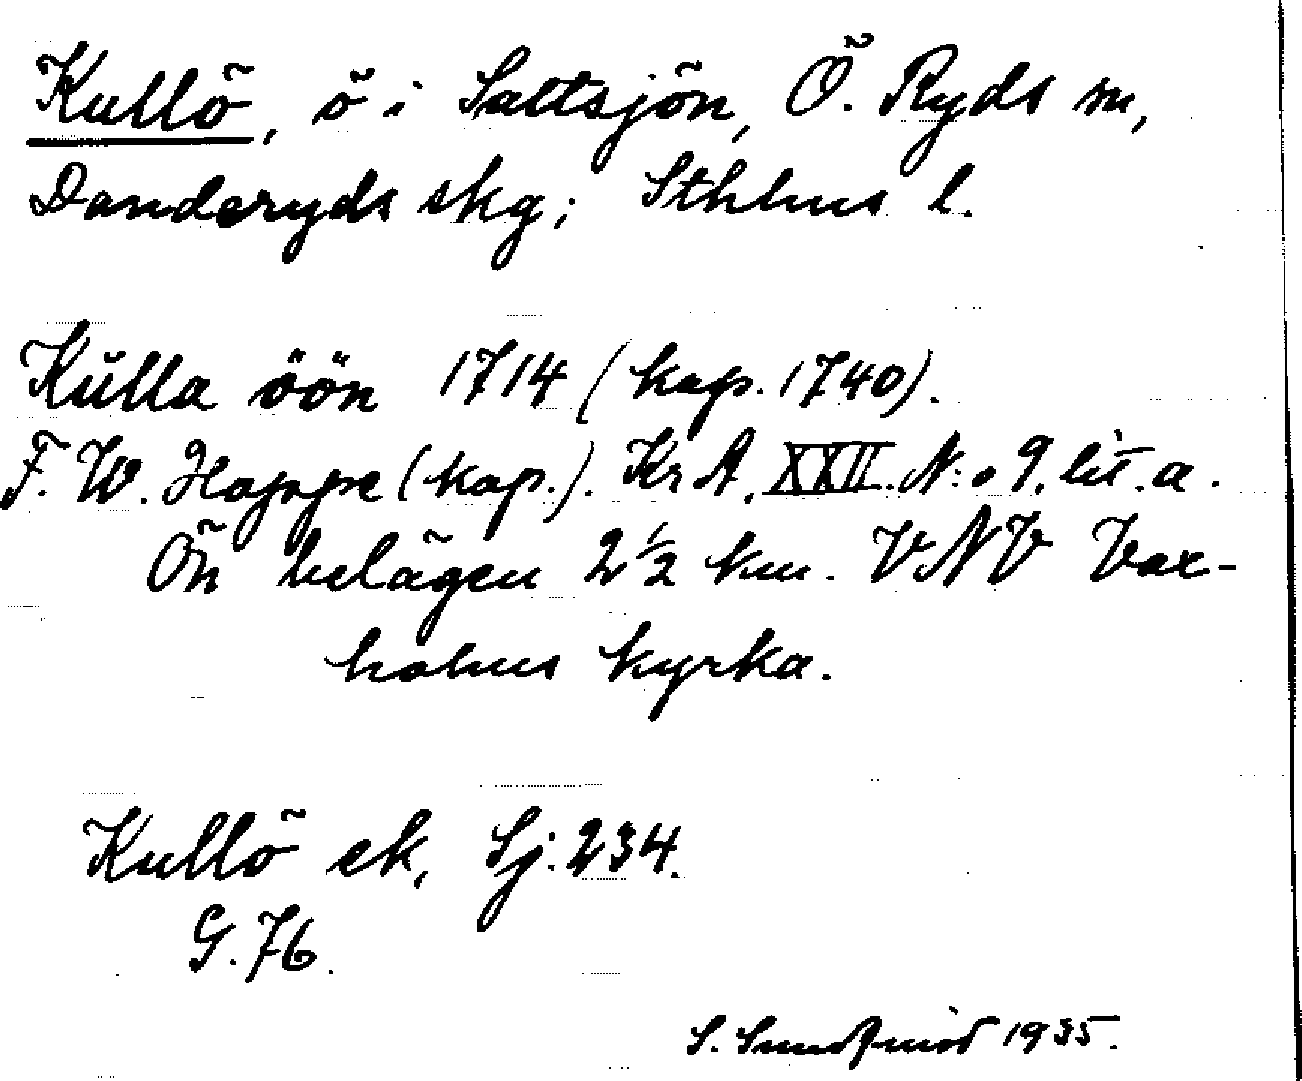 Kullö, ö i Saltsjön, Ö. Ryds sn,
Danderyds skg; Sthlms l.
Kŭlla öön 1714 (kop. 1740).
F. W. Hoppe (kop.). Kr A. XXII. N:o 9. lit. a.
Ön belägen 2 1/2 km. VNV Vax-
holms kyrka.
Kullö ek, Sj. 234.
G. 76.
S. Sundqvist 1935.